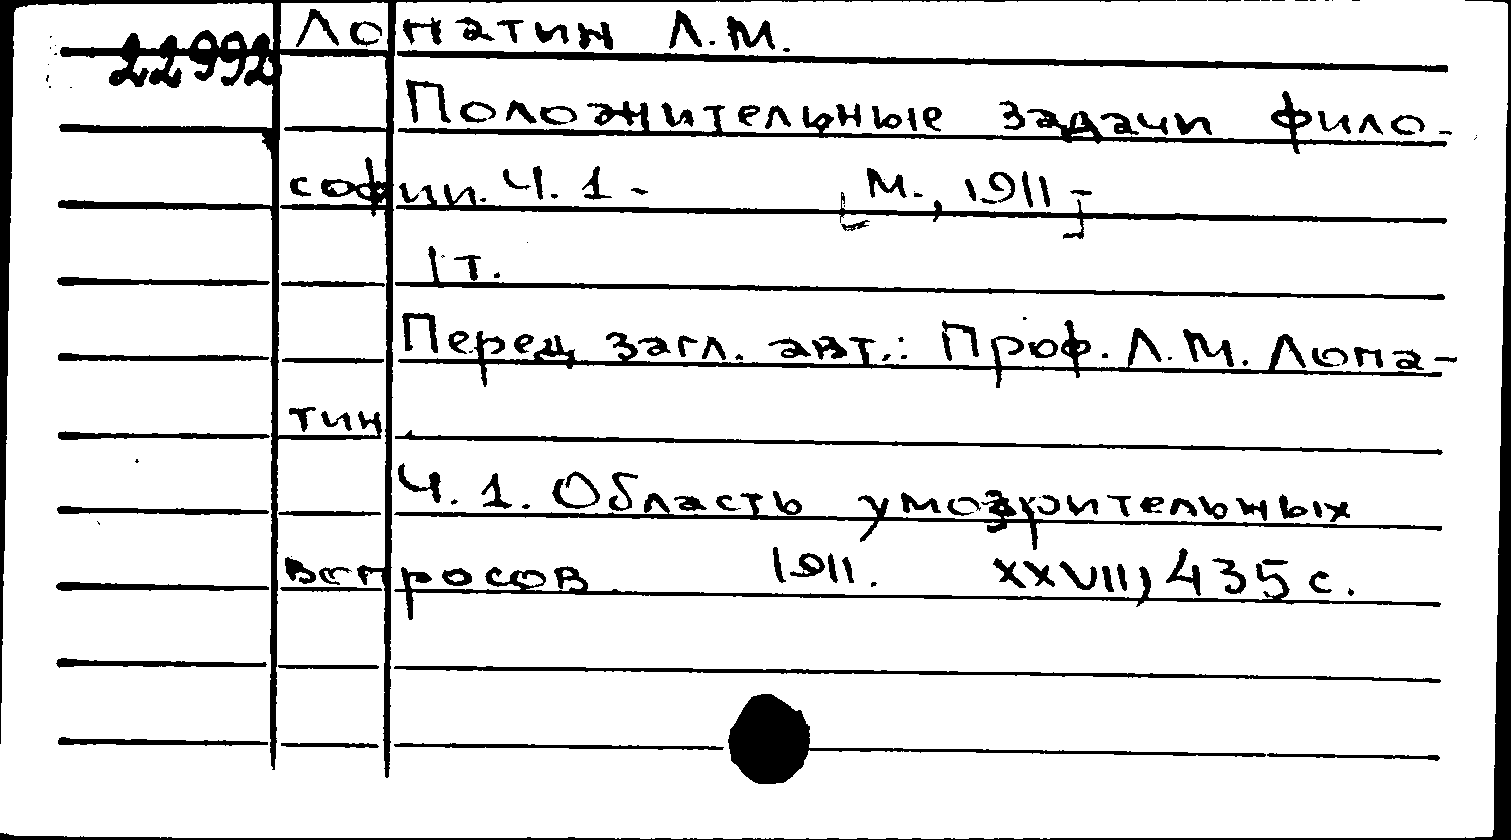 22992 Лопатин Л.М.
Положительные задачи фило-
софии. Ч. 1 - [М., 1911-]
1 т.
Перед загл. авт.: Проф. Л.М. Лопа-
тин.
Ч. 1. Область умозрительных
вопросов. 1911. XXVII, 435 с.